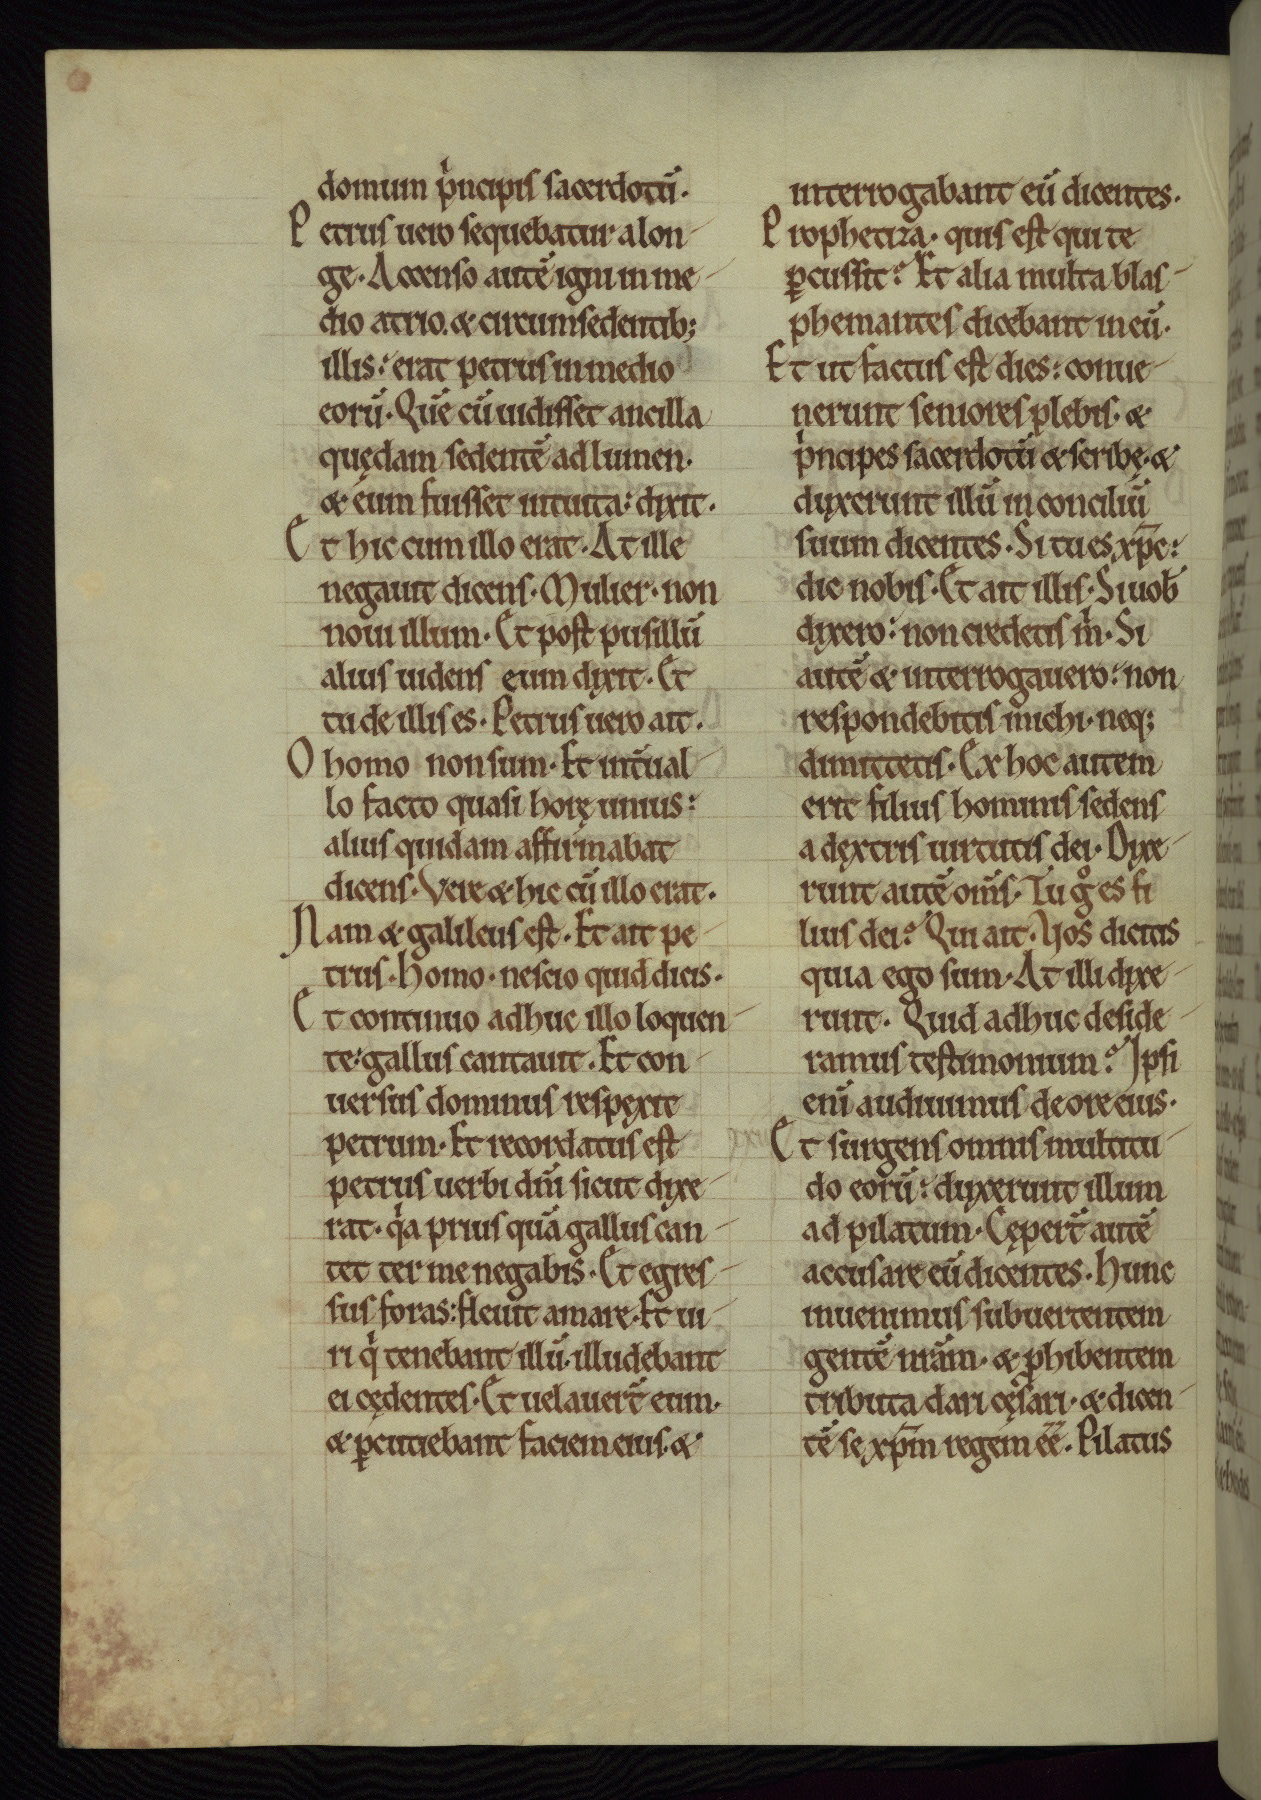 domum pͥncipis sacerdotū.
Petrus uero sequebatur a lon-
ge. Accenso autē igni in me-
dio atrio. & circumsedentib;
illis: erat petrus in medio
eorū. Quē cū uidisset ancilla
quędam sedentē ad lumen.
& eum fuisset intuita: dixit.
Et hic cum illo erat. At ille
negauit dicens. Mulier. non
noui illum. Et post pusillū
alius uidens eum dixit. Et
tu de illis es. Petrus uero ait.
O homo non sum. Et int̄ual-
lo facto quasi horę unius:
alius quidam affirmabat
dicens. Vere & hic cū illo erat.
Nam & galileus est. Et ait pe-
trus. Homo. nescio quid dicis.
Et continuo adhuc illo loquen-
te: gallus cantauit. Et con-
uersus dominus respexit
petrum. Et recordatus est
petrus uerbi dn̄i sicut dixe-
rat. qͥa prius quā gallus can-
tet ter me negabis. Et egres-
sus foras: fleuit amare. Et ui-
ri qͥ tenebant illū. illudebant
ei cędentes. Et uelauer̄t eum.
& ꝑcutiebant faciem eius. &
interrogabant eū dicentes.
Prophetiza. quis est qui te
ꝑcussit? Et alia multa blas-
phemantes dicebant in eū.
Et ut factus est dies: conue-
nerunt seniores plebis. &
pͥncipes sacerdotū & scribę. &
duxerunt illū in conciliū
suum dicentes. Si tu es xp̄c:
dic nobis. Et ait illis. Si uob̄
dixero: non credetis m̍. Si
autē & interrogauero: non
respondebitis michi. neq;
dimittetis. Ex hoc autem
erit filius hominis sedens
a dextris uirtutis dei. Dixe-
runt autē om̄s. Tu gͦ es fi
lius dei? Qui ait. Uos dicitis
quia ego sum. At illi dixe-
runt. Quid adhuc deside-
ramus testimonium? Ipsi
enī audiuimus de ore eius.
Et surgens omnis multitu-
do eorū: duxerunt illum
ad pilatum. Cęper̄t autē
accusare eū dicentes. Hunc
inuenimus subuertentem
gentē nr̄am. & ꝓhibentem
tributa dari cęsari. & dicen-
tē se xp̄m regem eē. Pilatus